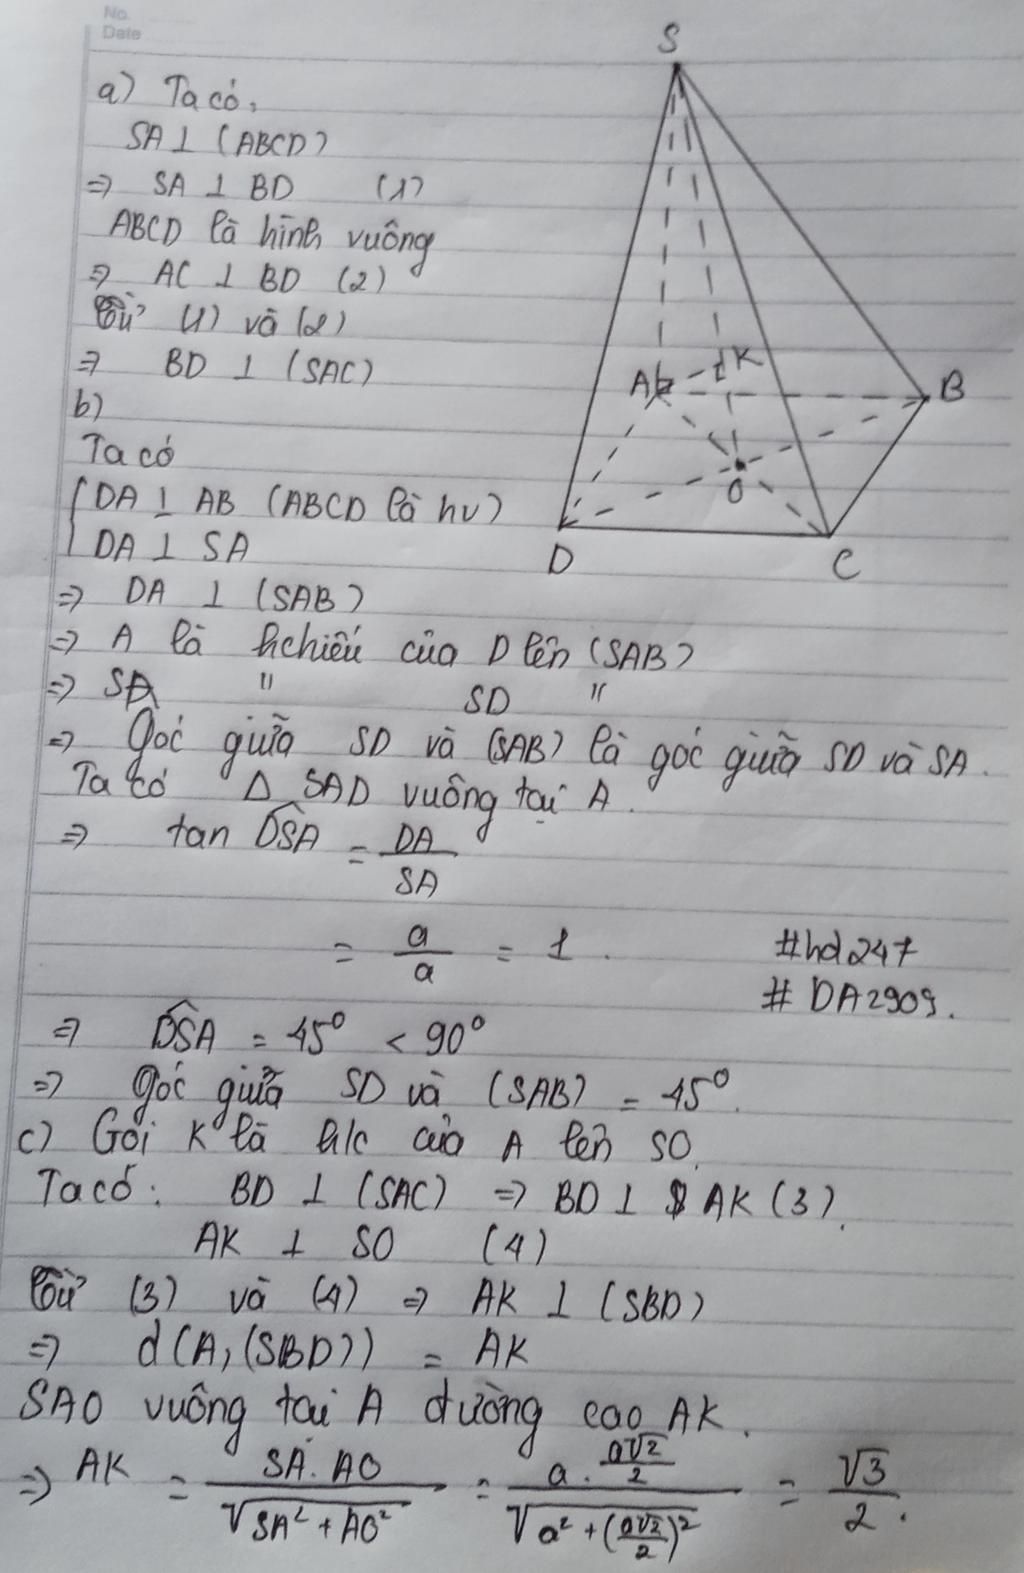 No.
Date
a) Ta có,
SA ⊥ (ABCD)
⇒ SA ⊥ BD (1)
ABCD là hình vuông
⇒ AC ⊥ BD (2)
Từ (1) và (2)
⇒ BD ⊥ (SAC)
b)
Ta có
{ DA ⊥ AB (ABCD là hv)
DA ⊥ SA
⇒ DA ⊥ (SAB)
⇒ A là hchiếu của D lên (SAB)
⇒ SA " SD "
⇒ Góc giữa SD và (SAB) là góc giữa SD và SA.
Ta có Δ SAD vuông tại A.
⇒ tan \widehat{DSA} = \frac{DA}{SA}
= \frac{a}{a} = 1.
⇒ \widehat{DSA} = 45° < 90°
⇒ góc giữa SD và (SAB) = 45°.
c) Gọi K là h/c của A lên SO.
Ta có: BD ⊥ (SAC) ⇒ BD ⊥ AK (3).
AK ⊥ SO (4)
Từ (3) và (4) ⇒ AK ⊥ (SBD)
⇒ d(A,(SBD)) = AK
SAO vuông tại A đường cao AK.
⇒ AK = \frac{SA.AO}{\sqrt{SA²+AO²}} = \frac{a.\frac{a\sqrt{2}}{2}}{\sqrt{a²+(\frac{a\sqrt{2}}{2})²}} = \frac{\sqrt{3}}{2}.
S
A
K
B
O
D
C
#hd247
# DA2909.